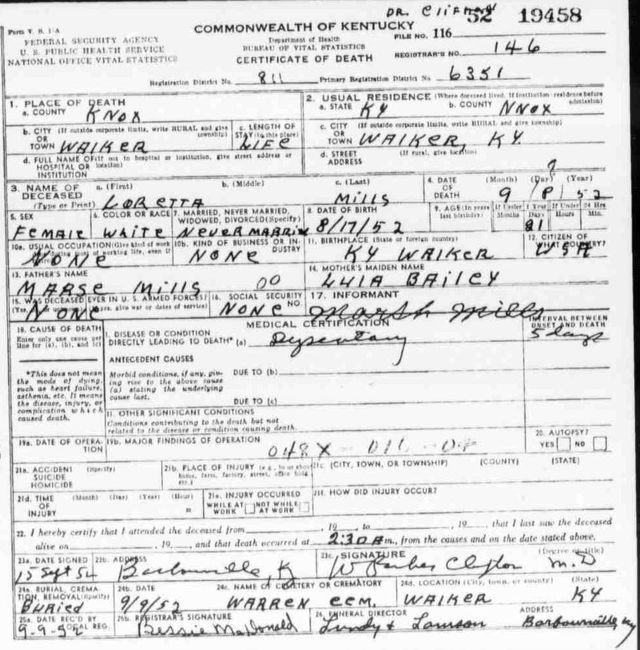 DR. Clifton
52 19458
Form V. S. 1-A
COMMONWEALTH OF KENTUCKY
FILE NO. 116
FEDERAL SECURITY AGENCY
Department of Health
U. S. PUBLIC HEALTH SERVICE
BUREAU OF VITAL STATISTICS
REGISTRAR'S NO. 146
NATIONAL OFFICE VITAL STATISTICS
CERTIFICATE OF DEATH
Registration District No. 811 Primary Registration District No. 6351
1. PLACE OF DEATH
a. COUNTY KNOX
2. USUAL RESIDENCE (Where deceased lived. If institution: residence before admission)
a. STATE KY b. COUNTY NNOX
b. CITY (If outside corporate limits, write RURAL and give township)
OR TOWN WALKER
c. LENGTH OF STAY (in this place) LIFE
c. CITY (If outside corporate limits, write RURAL and give township)
OR TOWN WALKER, KY.
d. FULL NAME OF (If not in hospital or institution, give street address or location)
HOSPITAL OR INSTITUTION
d. STREET ADDRESS (If rural, give location)
3. NAME OF DECEASED (Type or Print)
a. (First) LORETTA
b. (Middle)
c. (Last) Mills
4. DATE OF DEATH (Month) (Day) (Year)
9 8 52
5. SEX FEMALE
6. COLOR OR RACE WHITE
7. MARRIED, NEVER MARRIED, WIDOWED, DIVORCED (Specify) NEVER MARRIED
8. DATE OF BIRTH 8/17/52
9. AGE (In years last birthday) If Under 1 Year If Under 24 Hrs.
Months Days Hours Min.
10a. USUAL OCCUPATION (Give kind of work done during most of working life, even if retired) NONE
10b. KIND OF BUSINESS OR INDUSTRY NONE
11. BIRTHPLACE (State or foreign country) KY WALKER
12. CITIZEN OF WHAT COUNTRY? USA
13. FATHER'S NAME
MARSE Mills 00
14. MOTHER'S MAIDEN NAME
LULA BAILEY
15. WAS DECEASED EVER IN U. S. ARMED FORCES?
(Yes, no, or unknown) (If yes, give war or dates of service) NONE
16. SOCIAL SECURITY NO. NONE
17. INFORMANT
Marsh Mills
18. CAUSE OF DEATH
Enter only one cause per line for (a), (b), and (c)
MEDICAL CERTIFICATION
INTERVAL BETWEEN ONSET AND DEATH
I. DISEASE OR CONDITION
DIRECTLY LEADING TO DEATH* (a) Dysentary 5 days
ANTECEDENT CAUSES
*This does not mean the mode of dying, such as heart failure, asthenia, etc. It means the disease, injury, or complication which caused death.
Morbid conditions, if any, giving rise to the above cause (a) stating the underlying cause last.
DUE TO (b)
DUE TO (c)
II. OTHER SIGNIFICANT CONDITIONS
Conditions contributing to the death but not related to the disease or condition causing death.
19a. DATE OF OPERATION
19b. MAJOR FINDINGS OF OPERATION
048X
20. AUTOPSY?
YES NO
21a. ACCIDENT SUICIDE HOMICIDE (Specify)
21b. PLACE OF INJURY (e.g., in or about home, farm, factory, street, office bldg., etc.)
21c. (CITY, TOWN, OR TOWNSHIP) (COUNTY) (STATE)
21d. TIME OF INJURY (Month) (Day) (Year) (Hour) m
21e. INJURY OCCURRED
WHILE AT WORK NOT WHILE AT WORK
21f. HOW DID INJURY OCCUR?
22. I hereby certify that I attended the deceased from , 19 , to , 19 , that I last saw the deceased
alive on , 19 , and that death occurred at 2:30 A m., from the causes and on the date stated above.
23a. DATE SIGNED 15 Sept 54
23b. ADDRESS Barbourville Ky
23c. SIGNATURE (Degree or title)
W Parker Clifton M.D
24a. BURIAL, CREMATION, REMOVAL (Specify) Buried
24b. DATE 9/9/52
24c. NAME OF CEMETERY OR CREMATORY WARREN CEM.
24d. LOCATION (City, town, or county) (State) WALKER KY
25a. DATE REC'D BY LOCAL REG. 9-9-52
25b. REGISTRAR'S SIGNATURE Bessie MacDonald
26. FUNERAL DIRECTOR ADDRESS
Lundy & Lawson Barbourville, Ky